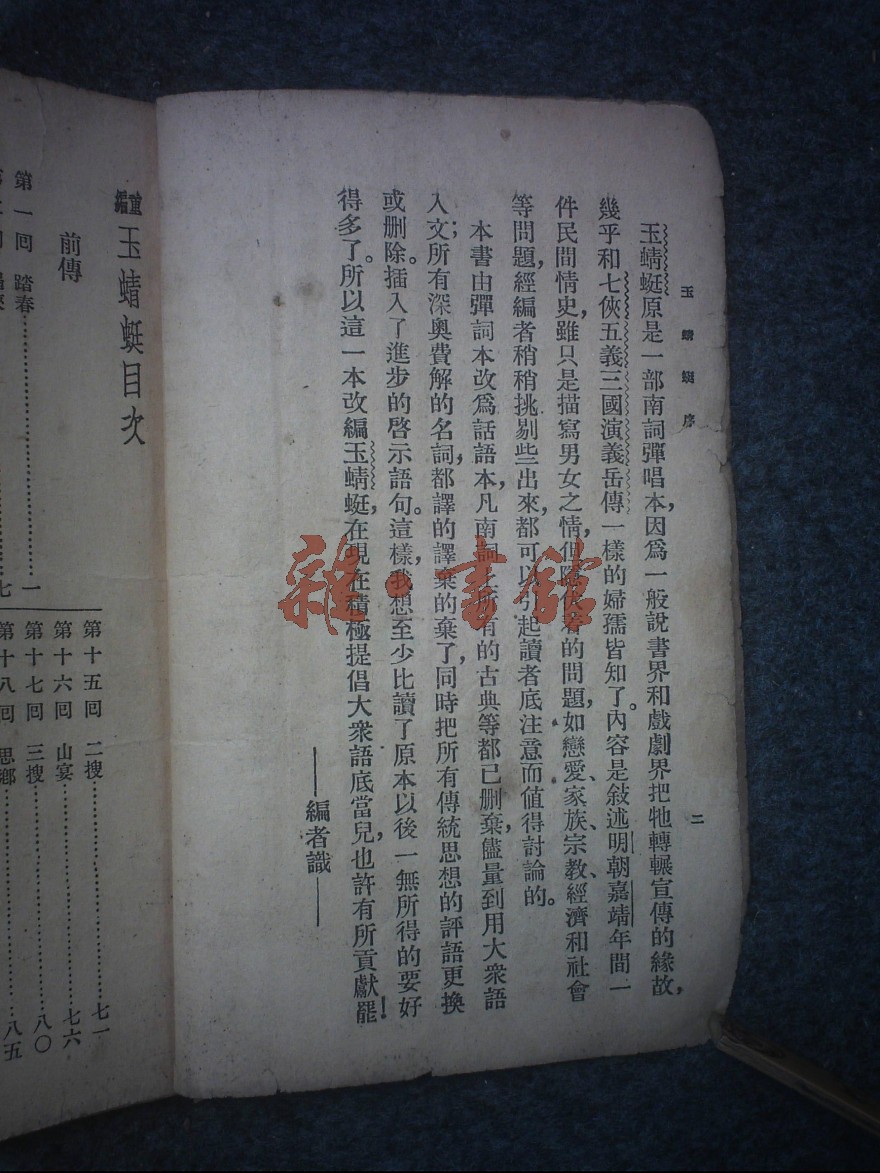 玉蜻蜓序
二
玉蜻蜓原是一部南詞彈唱本,因爲一般說書界和戲劇界把牠轉輾宣傳的緣故,
幾乎和七俠五義三國演義岳傳一樣的婦孺皆知了。內容是敍述明朝嘉靖年間一
件民間情史,雖只是描寫男女之情,但隱伏着的問題,如戀愛、家族、宗教、經濟和社會
等問題,經編者稍稍挑剔些出來,都可以引起讀者底注意而值得討論的。
本書由彈詞本改爲話語本,凡南詞上所有的古典等都已刪棄,儘量到用大衆語
入文;所有深奧費解的名詞,都譯的譯棄的棄了,同時把所有傳統思想的評語更換
或刪除。插入了進步的啓示語句。這樣,我想至少比讀了原本以後一無所得的要好
得多了。所以這一本改編玉蜻蜓,在現在積極提倡大衆語底當兒,也許有所貢獻罷!
——編者識——
雜·書館
重編玉蜻蜓目次
前傳
第一回 踏春……一
七
第十五回 二搜……七一
第十六回 山宴……七六
第十七回 三搜……八〇
第十八回 思鄉……八五